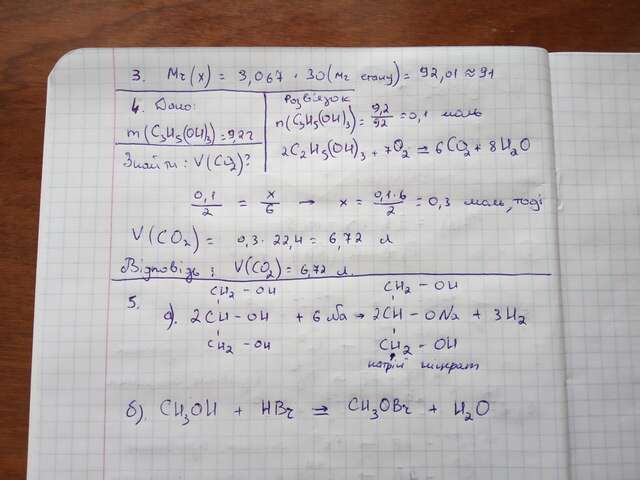 3. Mr(x) = 3,067 · 30 (Mr етану) = 92,01 ≈ 91
4. Дано:
m(C₃H₅(OH)₃) = 9,2 г
Знайти: V(CO₂)?
Розв'язок
n(C₃H₅(OH)₃) = 9,2/92 = 0,1 моль
2C₂H₅(OH)₃ + 7O₂ = 6CO₂ + 8H₂O
0,1/2 = x/6 → x = 0,1·6/2 = 0,3 моль, тоді
V(CO₂) = 0,3 · 22,4 = 6,72 л
Відповідь: V(CO₂) = 6,72 л.
5.
CH₂ - OH CH₂ - OH
а). 2CH - OH + 6Na → 2CH - ONa + 3H₂
CH₂ - OH CH₂ - OH
натрій гліцерат
б). CH₃OH + HBr ⇒ CH₃OBr + H₂O